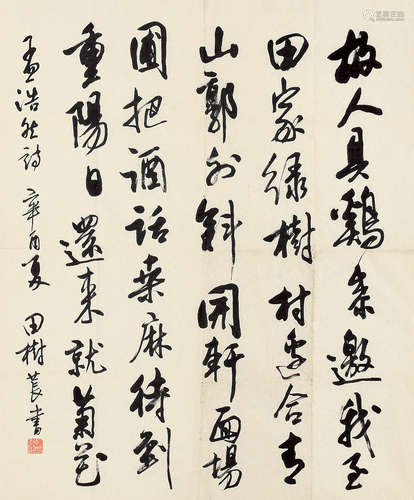 故人具鷄黍邀我至
田家綠樹村邊合青
山郭外斜開軒面場
圃把酒話桑麻待到
重陽日還來就菊花
孟浩然詩 辛酉夏 田樹萇書